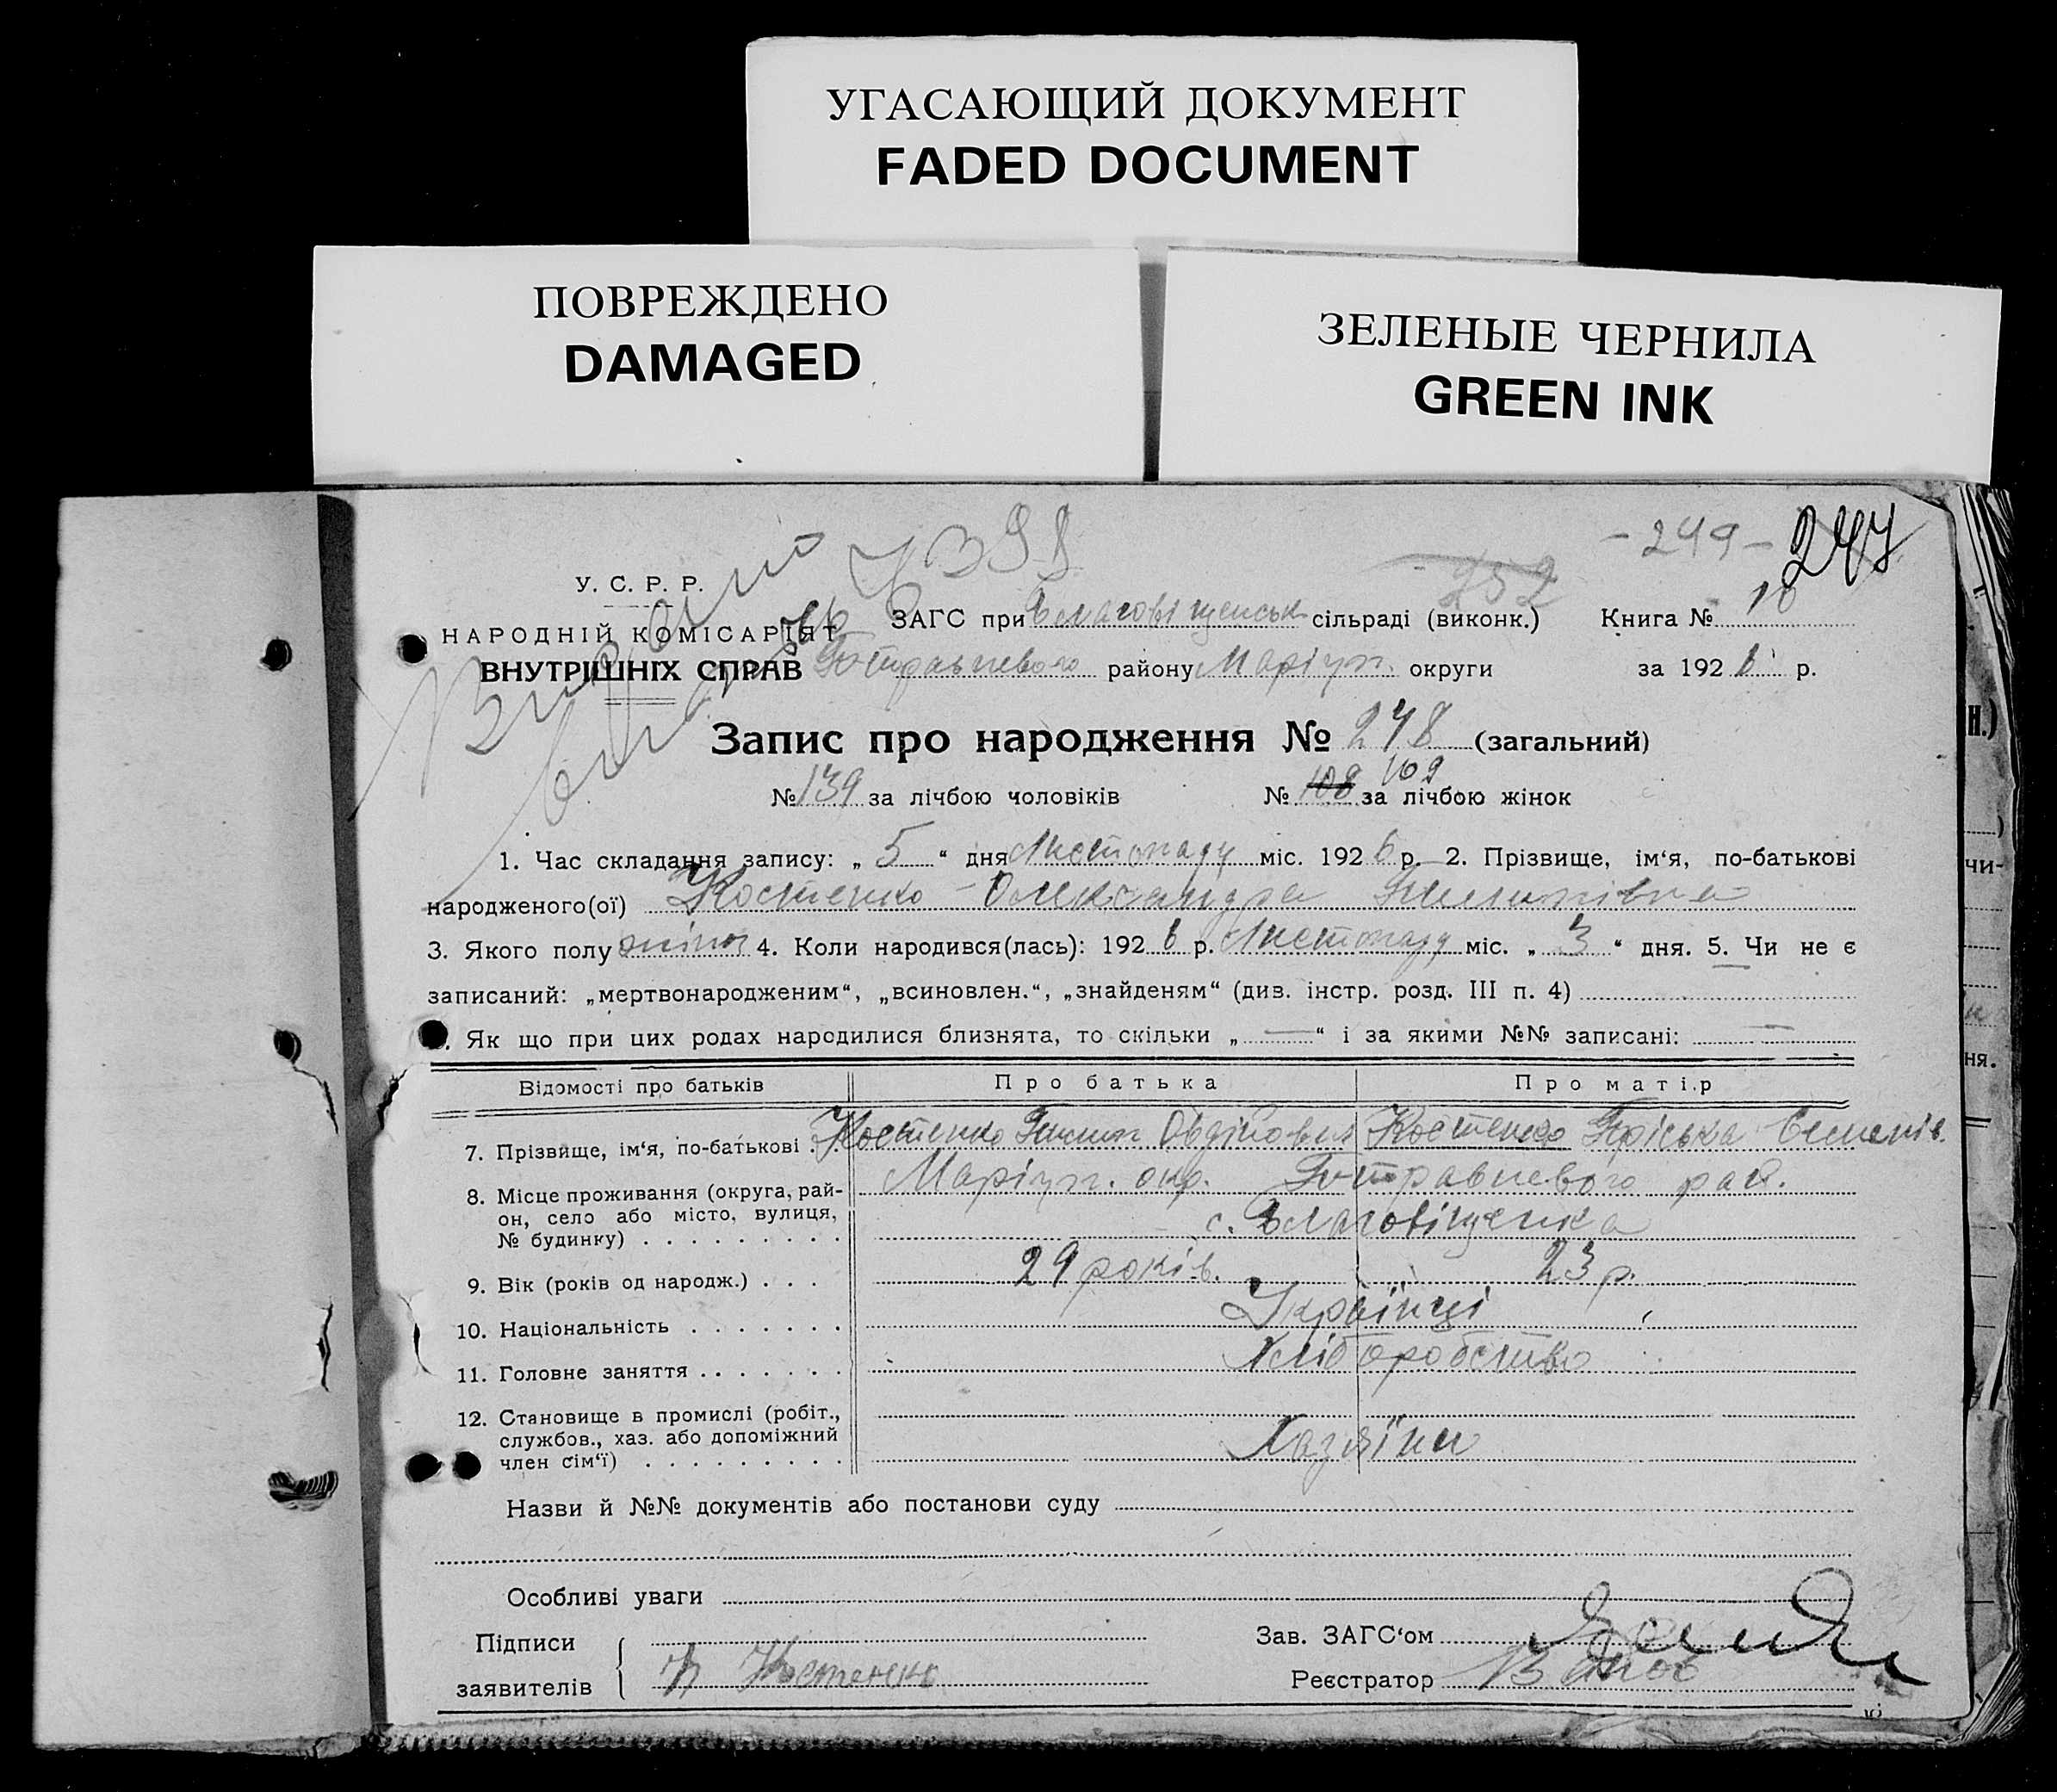 УГАСАЮЩИЙ ДОКУМЕНТ
FADED DOCUMENT
ПОВРЕЖДЕНО
DAMAGED
ЗЕЛЕНЫЕ ЧЕРНИЛА
GREEN INK
- 249 - 247
252
У. С. Р. Р.
НАРОДНІЙ КОМІСАРІЯТ
ВНУТРІШНІХ СПРАВ
ЗАГС при Благовіщенськ сільраді (виконк.) Книга № 10
району Маріуп. округи за 1926 р.
Запис про народження № 248 (загальний)
№ 139 за лічбою чоловіків № 108 109 за лічбою жінок
1. Час складання запису: „ 5 “ дня Листопаду міс. 1926 р. 2. Прізвище, ім‘я, по-батькові
народженого(ої) Костенко - Олександра Пилипівна
3. Якого полу жіноч 4. Коли народився(лась): 1926 р. Листопаду міс. „ 3 “ дня. 5. Чи не є
записаний: „мертвонародженим“, „всиновлен.“, „знайденям“ (див. інстр. розд. III п. 4)
. Як що при цих родах народилися близнята, то скільки „ — “ і за якими №№ записані: —
Відомості про батьків Про батька Про матір
7. Прізвище, ім‘я, по-батькові . . Костенко Пилип Овдійович Костенко Пріська Семенів.
8. Місце проживання (округа, рай- Маріуп. окр. рай.
он, село або місто, вулиця, с. Благовіщенка
№ будинку) . . . . . . . . .
9. Вік (років од народж.) . . . 29 років. 23 р.
10. Національність . . . . . . . Українці
11. Головне заняття . . . . . . Хліборобство
12. Становище в промислі (робіт.,
службов., хаз. або допоміжний Хазяїни
член сім‘ї) . . . . . . . . .
Назви й №№ документів або постанови суду
Особливі уваги
Підписи Зав. ЗАГС‘ом
заявителів Костенко Реєстратор